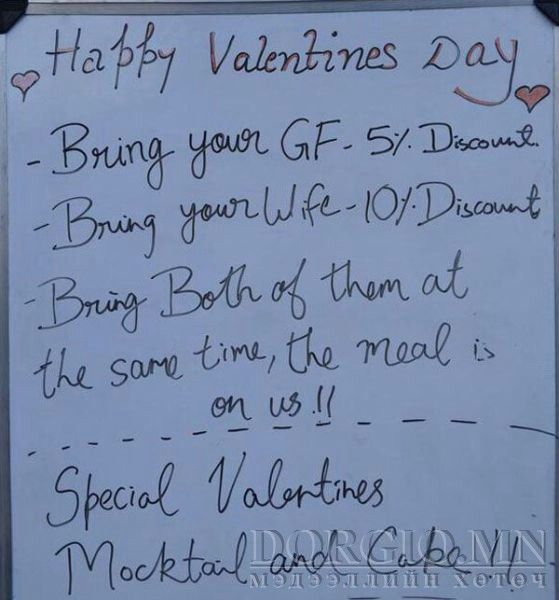 Happy Valentines Day
- Bring your GF - 5% Discount.
- Bring your Wife - 10% Discount
- Bring Both of them at
the same time, the meal is
on us !!
Special Valentines
Mocktail and Cake !!
DORGIO.MN
МЭДЭЭЛЛИЙН ХӨТӨЧ